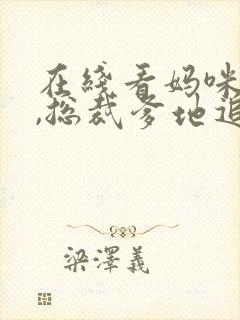 在线看妈咪
,总裁爹地追
梁泽义